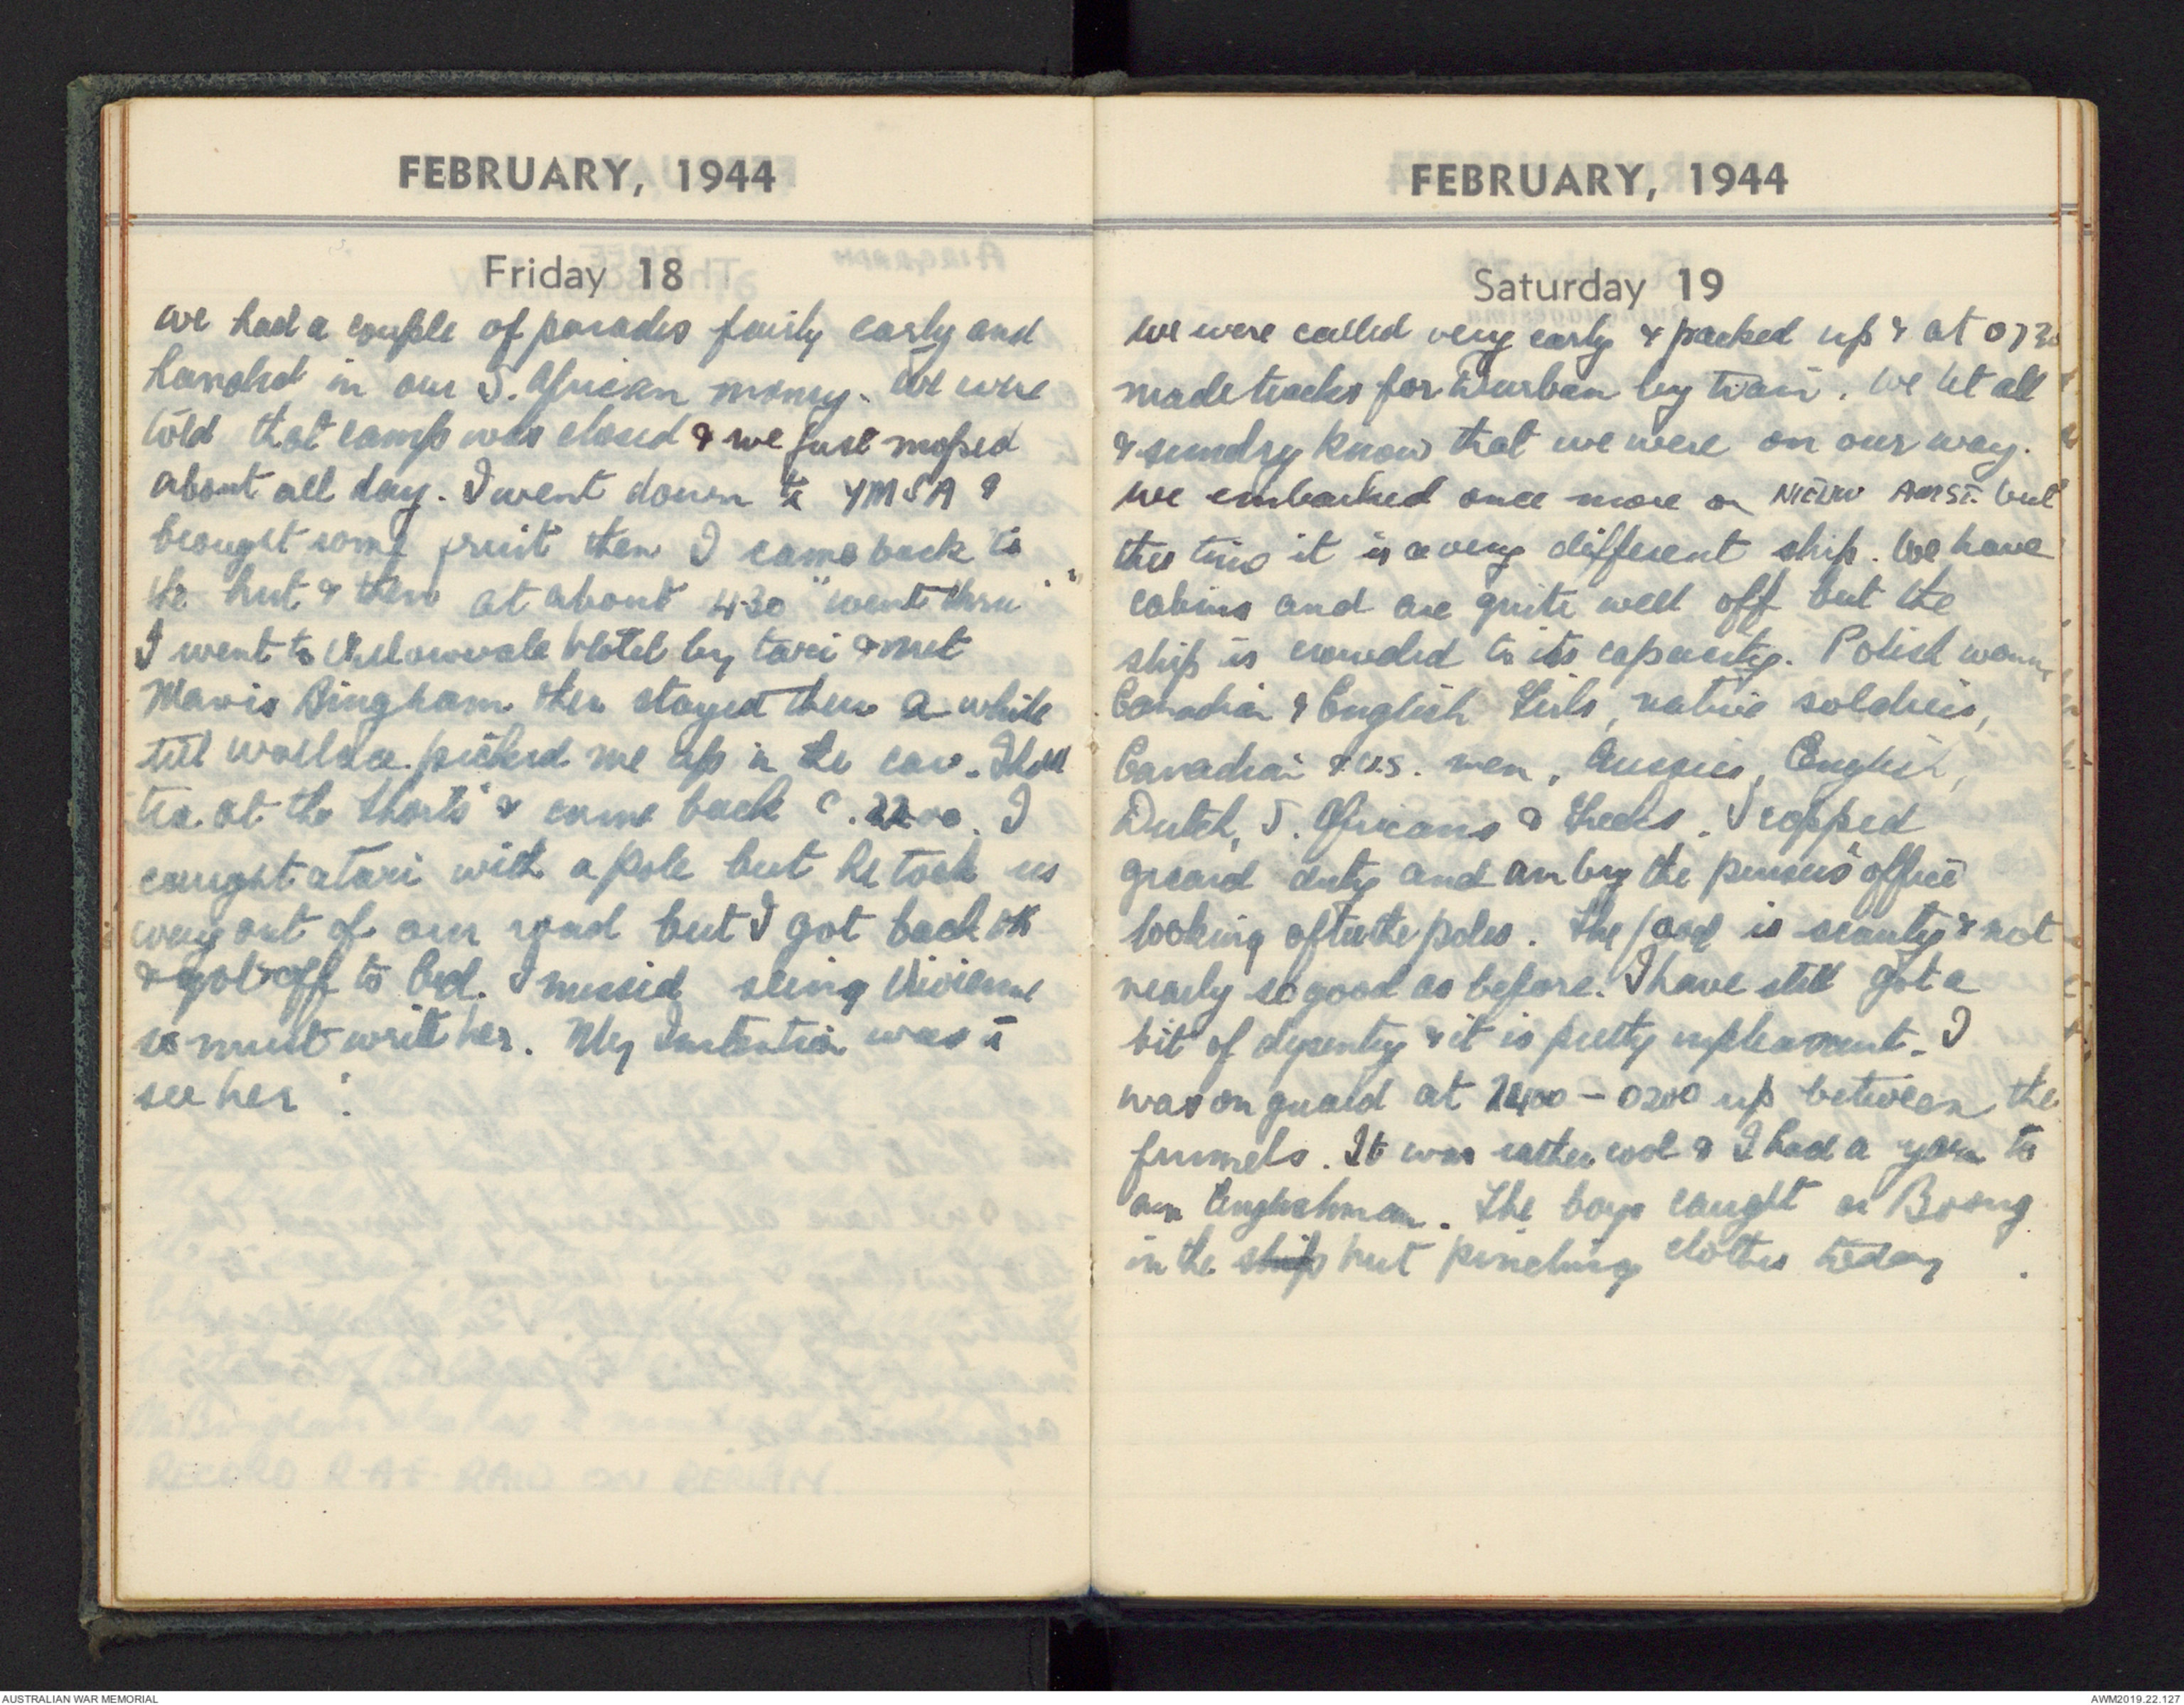 FEBRUARY, 1944
Friday 18
We had a couple of parades fairly early and
handed in our S. African money. We were
told that camp was closed & we just moped
about all day. I went down to YMSA &
brought some fruit then I came back to
the hut & then at about 430 "went thru"
I went to Hotel by taxi & met
Mavis Bingham then stayed there a while
till Wallace picked me up in the car. I had
tea at the Shorts' & came back c. 2200. I
caught a taxi with a pole but he took us
way out of our road but I got back OK
& got off to bed. I missed seeing Vivienne
so must write her. My Intention was to
see her !
FEBRUARY, 1944
Saturday 19
We were called very early & packed up & at 0730
made tracks for Durban by train. We let all
& sundry know that we were on our way.
We embarked once more on NIEUW AMST. but
this time it is a very different ship. We have
cabins and are quite well off but the
ship is crowded to its capacity. Polish women
Canadian & English Girls, native soldiers,
Canadian & U.S. men, Aussies, English,
Dutch, S. Africans & Greeks. I copped
guard duty and am by the pursers' office
looking after the poles. The food is scanty & not
nearly so good as before. I have still got a
bit of dysentry & it is pretty unpleasment. I
was on guard at 2400 - 0200 up between the
funnels. It was rather cool & I had a yarn to
an Englishman. The boys caught a Boong
in the ship hut pinching clothes today.
AUSTRALIAN WAR MEMORIAL
AWM2019.22.127